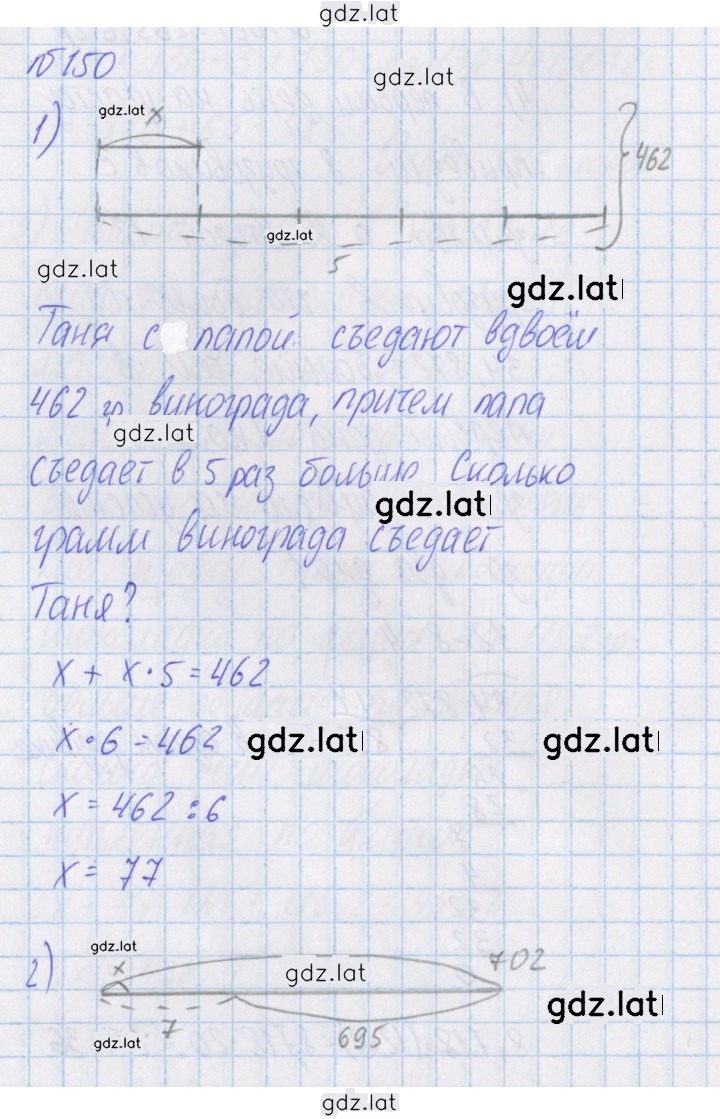 gdz.lat
№150
gdz.lat
gdz.lat
1) x
462
gdz.lat
5
gdz.lat
gdz.lat
Таня с папой съедают вдвоём
462 гр винограда, причем папа
gdz.lat
съедает в 5 раз больше Сколько
gdz.lat
грамм винограда съедает
Таня?
x + x·5 = 462
x·6 = 462 gdz.lat gdz.lat
x = 462 : 6
x = 77
gdz.lat
2) x gdz.lat 702
gdz.lat
7 695
gdz.lat
gdz.lat